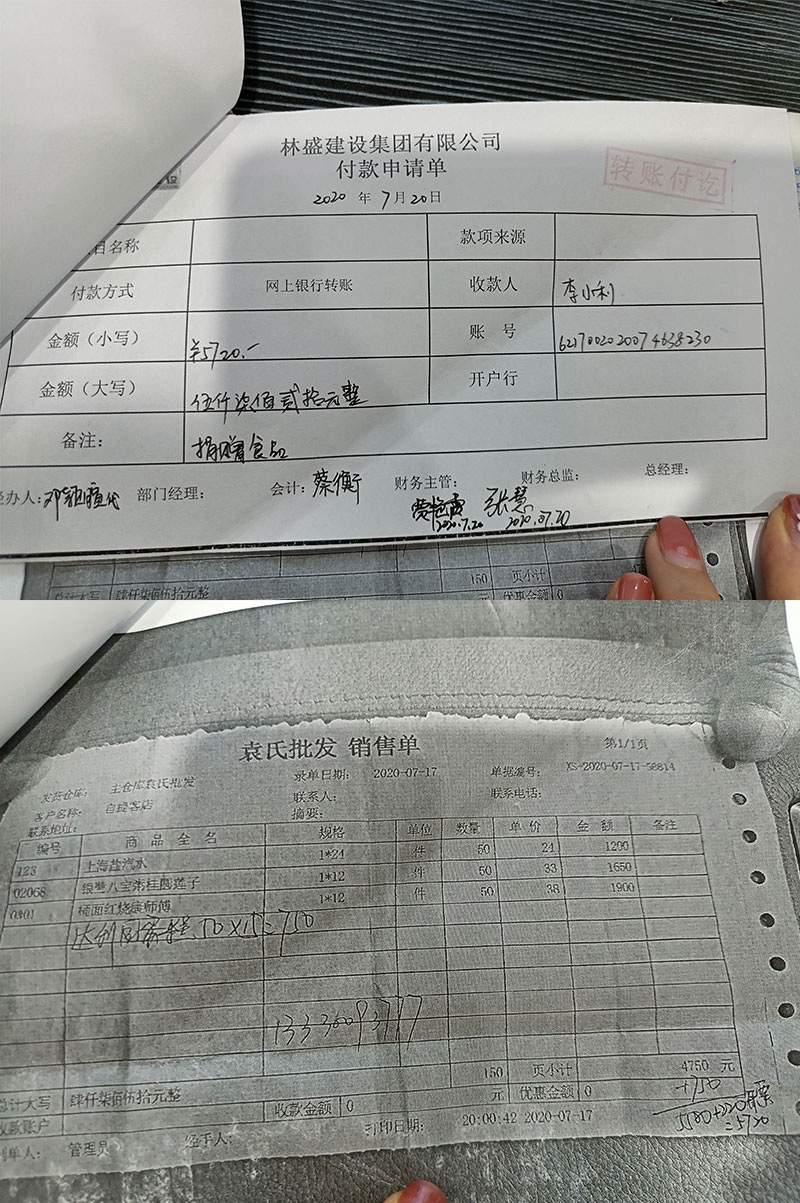 林盛建设集团有限公司
付款申请单
转账付讫
2020 年 7月20日
目名称 款项来源
付款方式 网上银行转账 收款人 李小利
金额（小写） ¥5720.- 账 号 6217002020074638230
金额（大写） 伍仟柒佰贰拾元整 开户行
备注： 捐赠食品
经办人： 部门经理： 会计：蔡衡 财务主管： 财务总监： 总经理：
张慧
2020.7.20 2020.07.20
150 页小计
总计大写 肆仟柒佰伍拾元整 元 优惠金额 0
袁氏批发 销售单 第1/1页
发货仓库： 主仓库袁氏批发 录单日期： 2020-07-17 单据编号： XS-2020-07-17-58814
客户名称： 自提客店 联系人： 联系电话：
联系地址： 摘要：
编号 商 品 全 名 规格 单位 数量 单 价 金 额 备注
123 上海盐汽水 1*24 件 50 24 1200
02068 银鹭八宝粥桂圆莲子 1*12 件 50 33 1650
0301 桶面红烧康师傅 1*12 件 50 38 1900
50×15=750
13330093777
150 页小计 4750 元
总计大写 肆仟柒佰伍拾元整 元 优惠金额 0
+750
收款账户 收款金额 0
5500+220开票
=5720
制单人： 管理员 经手人： 打印日期： 20:00:42 2020-07-17